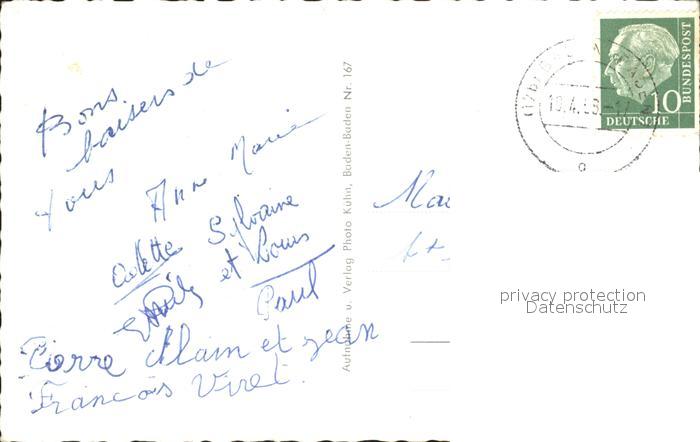 Bons
baisers de
tous
Anne Marie
Odette Sylvaine
et Louis
Paul
Pierre Alain et Jean
François Viret.
Aufnahme u. Verlag Photo Kuhn, Baden-Baden Nr. 167
10
DEUTSCHE
BUNDESPOST
privacy protection
Datenschutz